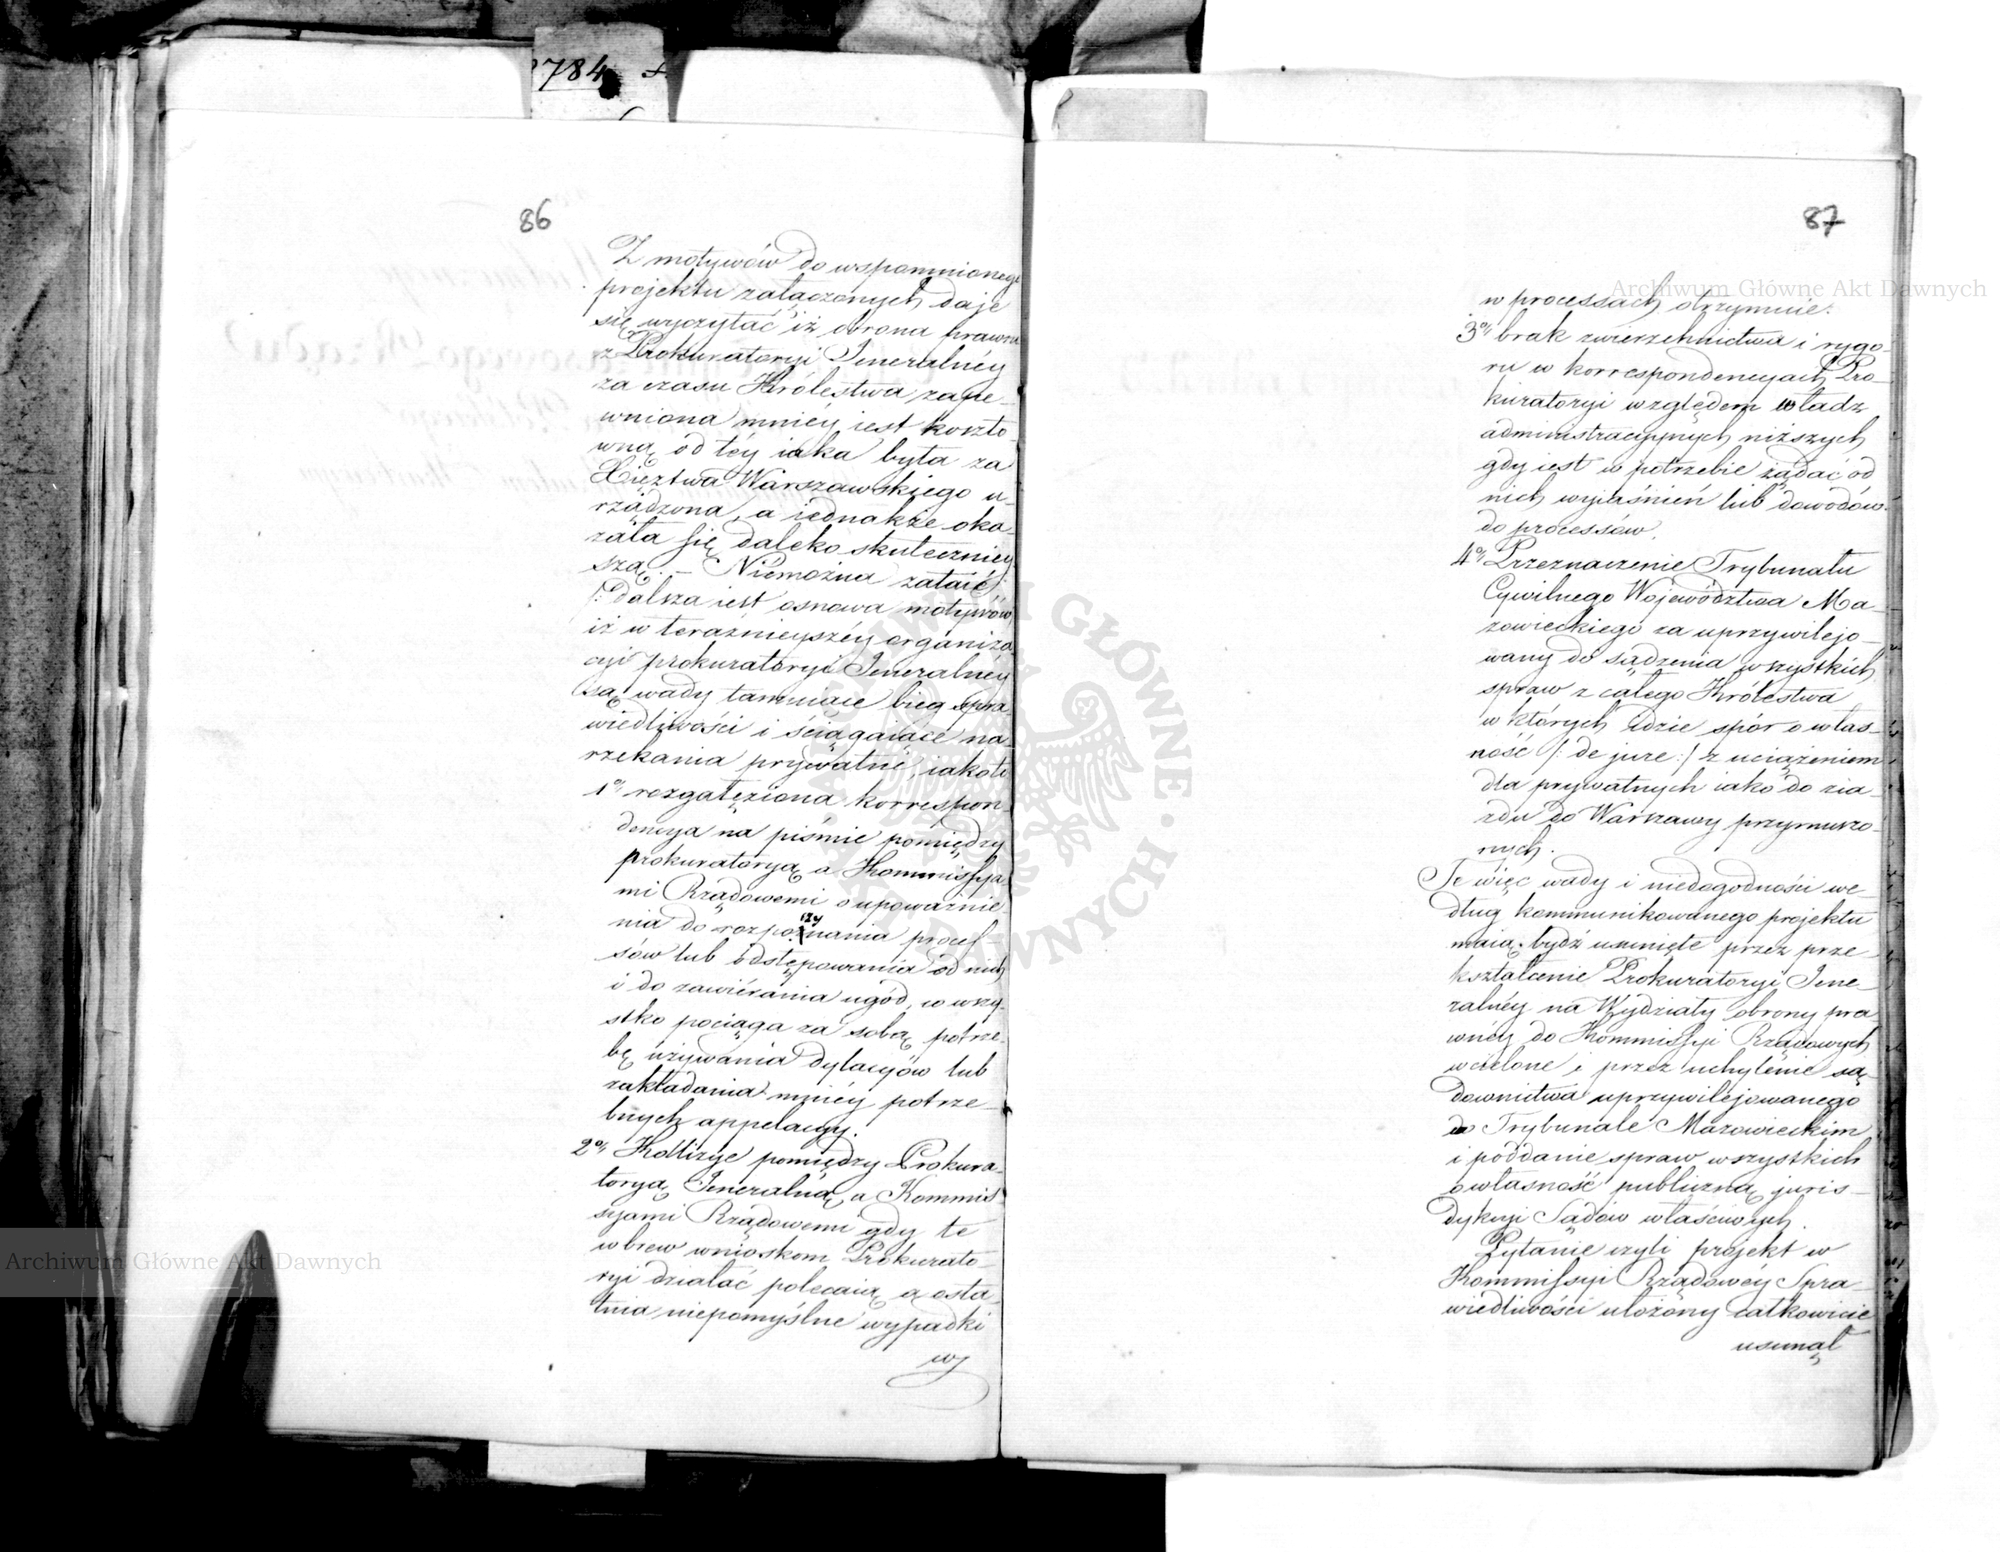 784
86
Z motywów do wspomnionego
projektu załączonych daje
się wyczytać iż obrona prawna
z Prokuratoryi Jeneralnéy
za czasu Królestwa zape-
wniona mniéy iest koszto-
wną od téy iaka była za
Xięztwa Warszawskiego u-
rządzona, a iednakże oka-
zała się daleko skuteczniey
szą. – Niemożna zataić
/: dalsza iest osnowa motywów
iż w teraźnieyszéy organiza-
cyi prokuratoryi Jeneralnéy
są wady tamuiace bieg spra
wiedliwości i ściągaiące na-
rzekania prywatne, iakoto
1o/ rozgałęziona korrespon-
dencya na piśmie pomiędzy
prokuratoryą a Kommissya
mi Rządowemi o upoważnie
nia do rozpoznania proces-
sów lub odstępowania od nich
i do zawiérania ugód, co wszy-
stko pociąga za sobą potrze-
bę używania dylacyów lub
zakładania mniéy potrze-
bnych appelacyy.
2o/ Kollizye pomiędzy Prokura-
toryą Jeneralną a Kommis
syami Rządowemi gdy te
wbrew wnioskom Prokurato-
ryi działać polecaią a osta-
tnia niepomyślne wypadki
w
87
w processach otrzymuie.
3o/ brak zwierzchnictwa i rygo-
ru w korrespondencyach Pro-
kuratoryi względem władz
administracyynych niższych
gdy iest w potrzebie żądać od
nich wyiaśnień lub dowodów
do processów.
4o/ Przeznaczenie Trybunału
Cywilnego Województwa Ma-
zowieckiego za uprzywilejo-
wany do sądzenia wszystkich
spraw z całego Królestwa
w których idzie spór o włas-
ność /: de jure :/ z uciążeniem
dla prywatnych iako do zia-
zdu do Warszawy przymuszo-
nych.
Te więc wady i niedogodności we-
dług kommunikowanego projektu
maią bydź usunięte przez prze-
kształcenie Prokuratoryi Jene-
ralnéy na Wydziały obrony pra
wnéy do Kommissyi Rządowych
wcielone i przez uchylenie są-
downictwa uprzywilejowanego
w Trybunale Mazowieckim
i poddanie spraw wszystkich
o własność publiczną juris-
dykcyi Sądów właściwych.
Pytanie czyli projekt w
Kommissyi Rządowéy Spra-
wiedliwości ułożony całkowicie
usunął
Archiwum Główne Akt Dawnych
Archiwum Główne Akt Dawnych